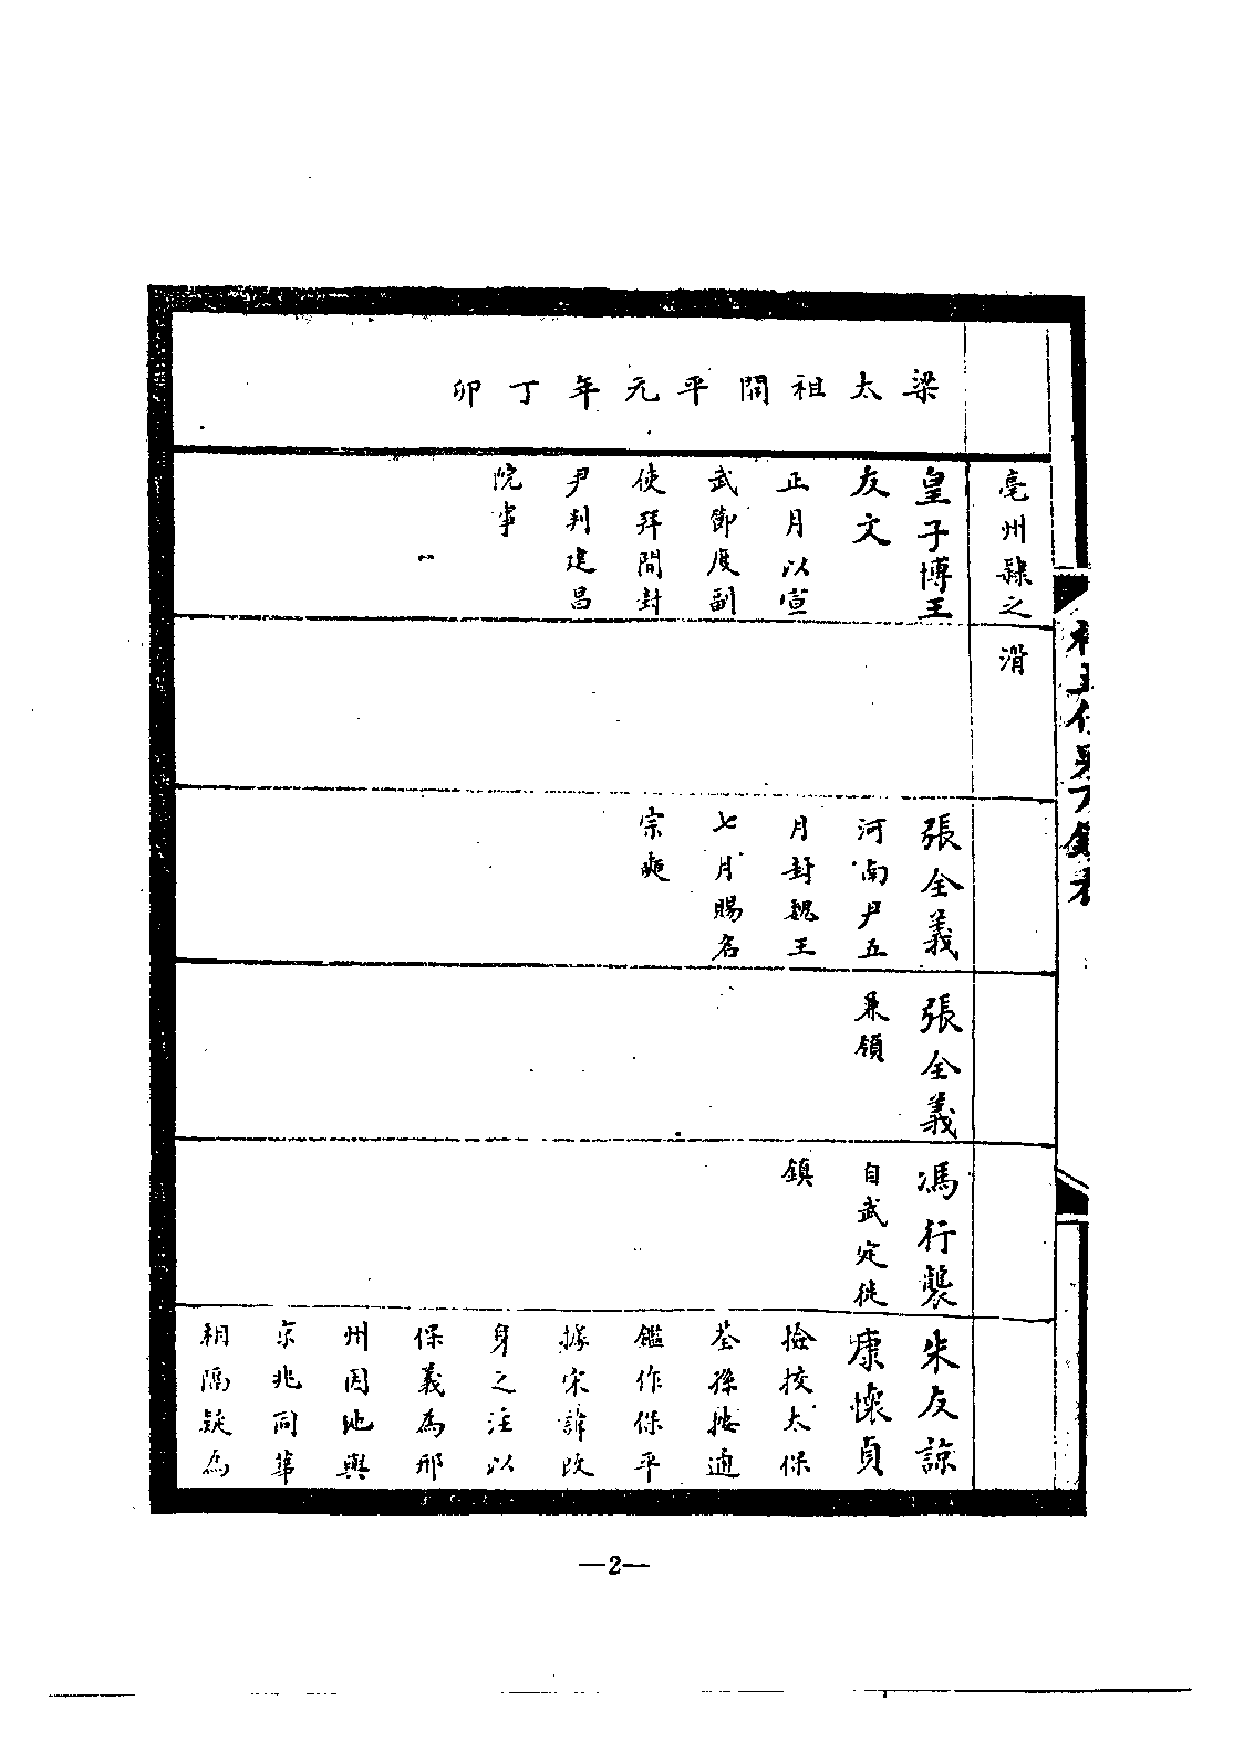 亳州隸之
滑
梁太祖開平元年丁卯
皇子博王
友文
正月以宣
武節度副
使拜開封
尹判建昌
院事
張全義
河南尹五
月封魏王
七月賜名
宗奭
張全義
兼領
馮行襲
自武定徙
鎮
朱友諒
康懷貞
檢挍太保
荃孫按通
鑑作保平
據宋諱改
身之注以
保義為邢
州因地與
京兆同華
相隔疑為
—2—